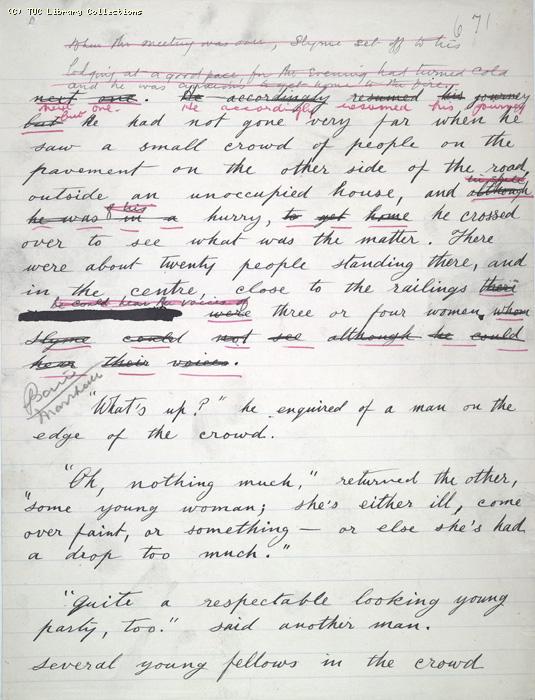 (C) TUC Library Collections
671
When the meeting was over, Slyme set off to his
lodging at a good pace, for the evening had turned cold
and he was anxious to get home to the fire.
next one. He accordingly resumed his journey
next one. He accordingly resumed his journey
but He had not gone very far when he
saw a small crowd of people on the
pavement on the other side of the road
outside an unoccupied house, and although
in spite
he was in a hurry, to get home he crossed
of his
over to see what was the matter. There
were about twenty people standing there, and
in the centre close to the railings their
he could hear the voices of
were three or four women, whom
Slyme could not see although he could
hear their voices.
"What's up?" he enquired of a man on the
edge of the crowd.
"Oh, nothing much," returned the other,
"some young woman; she's either ill, come
over faint, or something — or else she's had
a drop too much."
"Quite a respectable looking young
party, too." said another man.
Several young fellows in the crowd